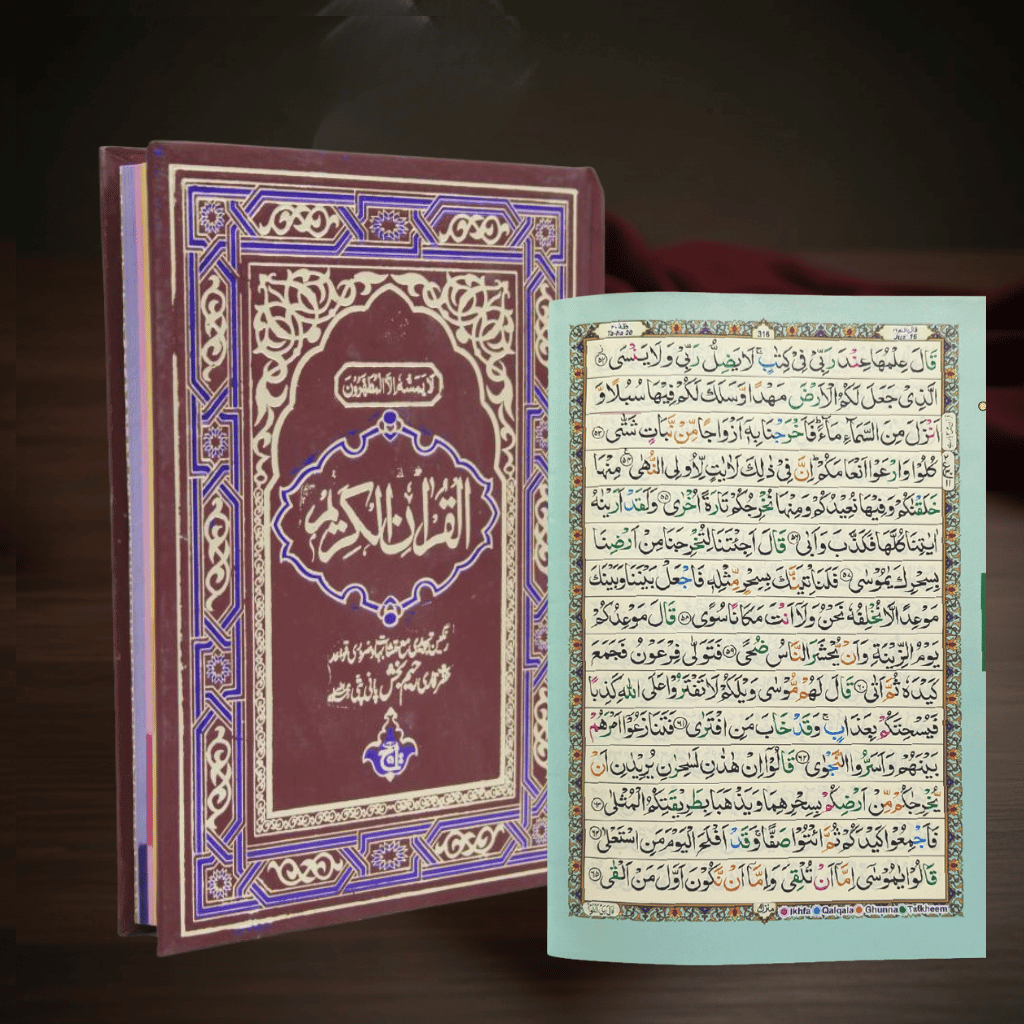 لَا يَمَسُّهٗٓ اِلَّا الْمُطَهَّرُوْنَ
اَلْقُرْاٰنُ الْكَرِيْمُ
رنگین تجویدی مع متشابہات و ضروری قواعد
قاری رحیم بخش پانی پتی
تاج
طٰهٰ ٢٠
Ta-ha 20
316
قال الم ١٦
Juz' 16
قَالَ عِلْمُهَا عِنْدَ رَبِّىْ فِىْ كِتٰبٍ ۚ لَا يَضِلُّ رَبِّىْ وَلَا يَنْسَى ۙ ﴿٥٢﴾
الَّذِىْ جَعَلَ لَكُمُ الْاَرْضَ مَهْدًا وَّسَلَكَ لَكُمْ فِيْهَا سُبُلًا وَّ
اَنْزَلَ مِنَ السَّمَآءِ مَآءً ؕ فَاَخْرَجْنَا بِهٖۤ اَزْوَاجًا مِّنْ نَّبَاتٍ شَتّٰى ﴿٥٣﴾
كُلُوْا وَارْعَوْا اَنْعَامَكُمْ ؕ اِنَّ فِىْ ذٰلِكَ لَاٰيٰتٍ لِّاُولِى النُّهٰى ﴿٥٤﴾ مِنْهَا
خَلَقْنٰكُمْ وَفِيْهَا نُعِيْدُكُمْ وَمِنْهَا نُخْرِجُكُمْ تَارَةً اُخْرٰى ﴿٥٥﴾ وَلَقَدْ اَرَيْنٰهُ
اٰيٰتِنَا كُلَّهَا فَكَذَّبَ وَاَبٰى ﴿٥٦﴾ قَالَ اَجِئْتَنَا لِتُخْرِجَنَا مِنْ اَرْضِنَا
بِسِحْرِكَ يٰمُوْسٰى ﴿٥٧﴾ فَلَنَاْتِيَنَّكَ بِسِحْرٍ مِّثْلِهٖ فَاجْعَلْ بَيْنَنَا وَبَيْنَكَ
مَوْعِدًا لَّا نُخْلِفُهٗ نَحْنُ وَلَاۤ اَنْتَ مَكَانًا سُوًى ﴿٥٨﴾ قَالَ مَوْعِدُكُمْ
يَوْمُ الزِّيْنَةِ وَاَنْ يُّحْشَرَ النَّاسُ ضُحًى ﴿٥٩﴾ فَتَوَلّٰى فِرْعَوْنُ فَجَمَعَ
كَيْدَهٗ ثُمَّ اَتٰى ﴿٦٠﴾ قَالَ لَهُمْ مُّوْسٰى وَيْلَكُمْ لَا تَفْتَرُوْا عَلَى اللّٰهِ كَذِبًا
فَيُسْحِتَكُمْ بِعَذَابٍ ۚ وَقَدْ خَابَ مَنِ افْتَرٰى ﴿٦١﴾ فَتَنَازَعُوْۤا اَمْرَهُمْ
بَيْنَهُمْ وَاَسَرُّوا النَّجْوٰى ﴿٦٢﴾ قَالُوْۤا اِنْ هٰذٰنِ لَسٰحِرٰنِ يُرِيْدٰنِ اَنْ
يُّخْرِجٰكُمْ مِّنْ اَرْضِكُمْ بِسِحْرِهِمَا وَيَذْهَبَا بِطَرِيْقَتِكُمُ الْمُثْلٰى ﴿٦٣﴾
فَاَجْمِعُوْا كَيْدَكُمْ ثُمَّ ائْتُوْا صَفًّا ۚ وَقَدْ اَفْلَحَ الْيَوْمَ مَنِ اسْتَعْلٰى ﴿٦٤﴾
قَالُوْا يٰمُوْسٰۤى اِمَّاۤ اَنْ تُلْقِىَ وَاِمَّاۤ اَنْ نَّكُوْنَ اَوَّلَ مَنْ اَلْقٰى ﴿٦٥﴾
منزل Ikhfa Qalqala Ghunna Tafkheem